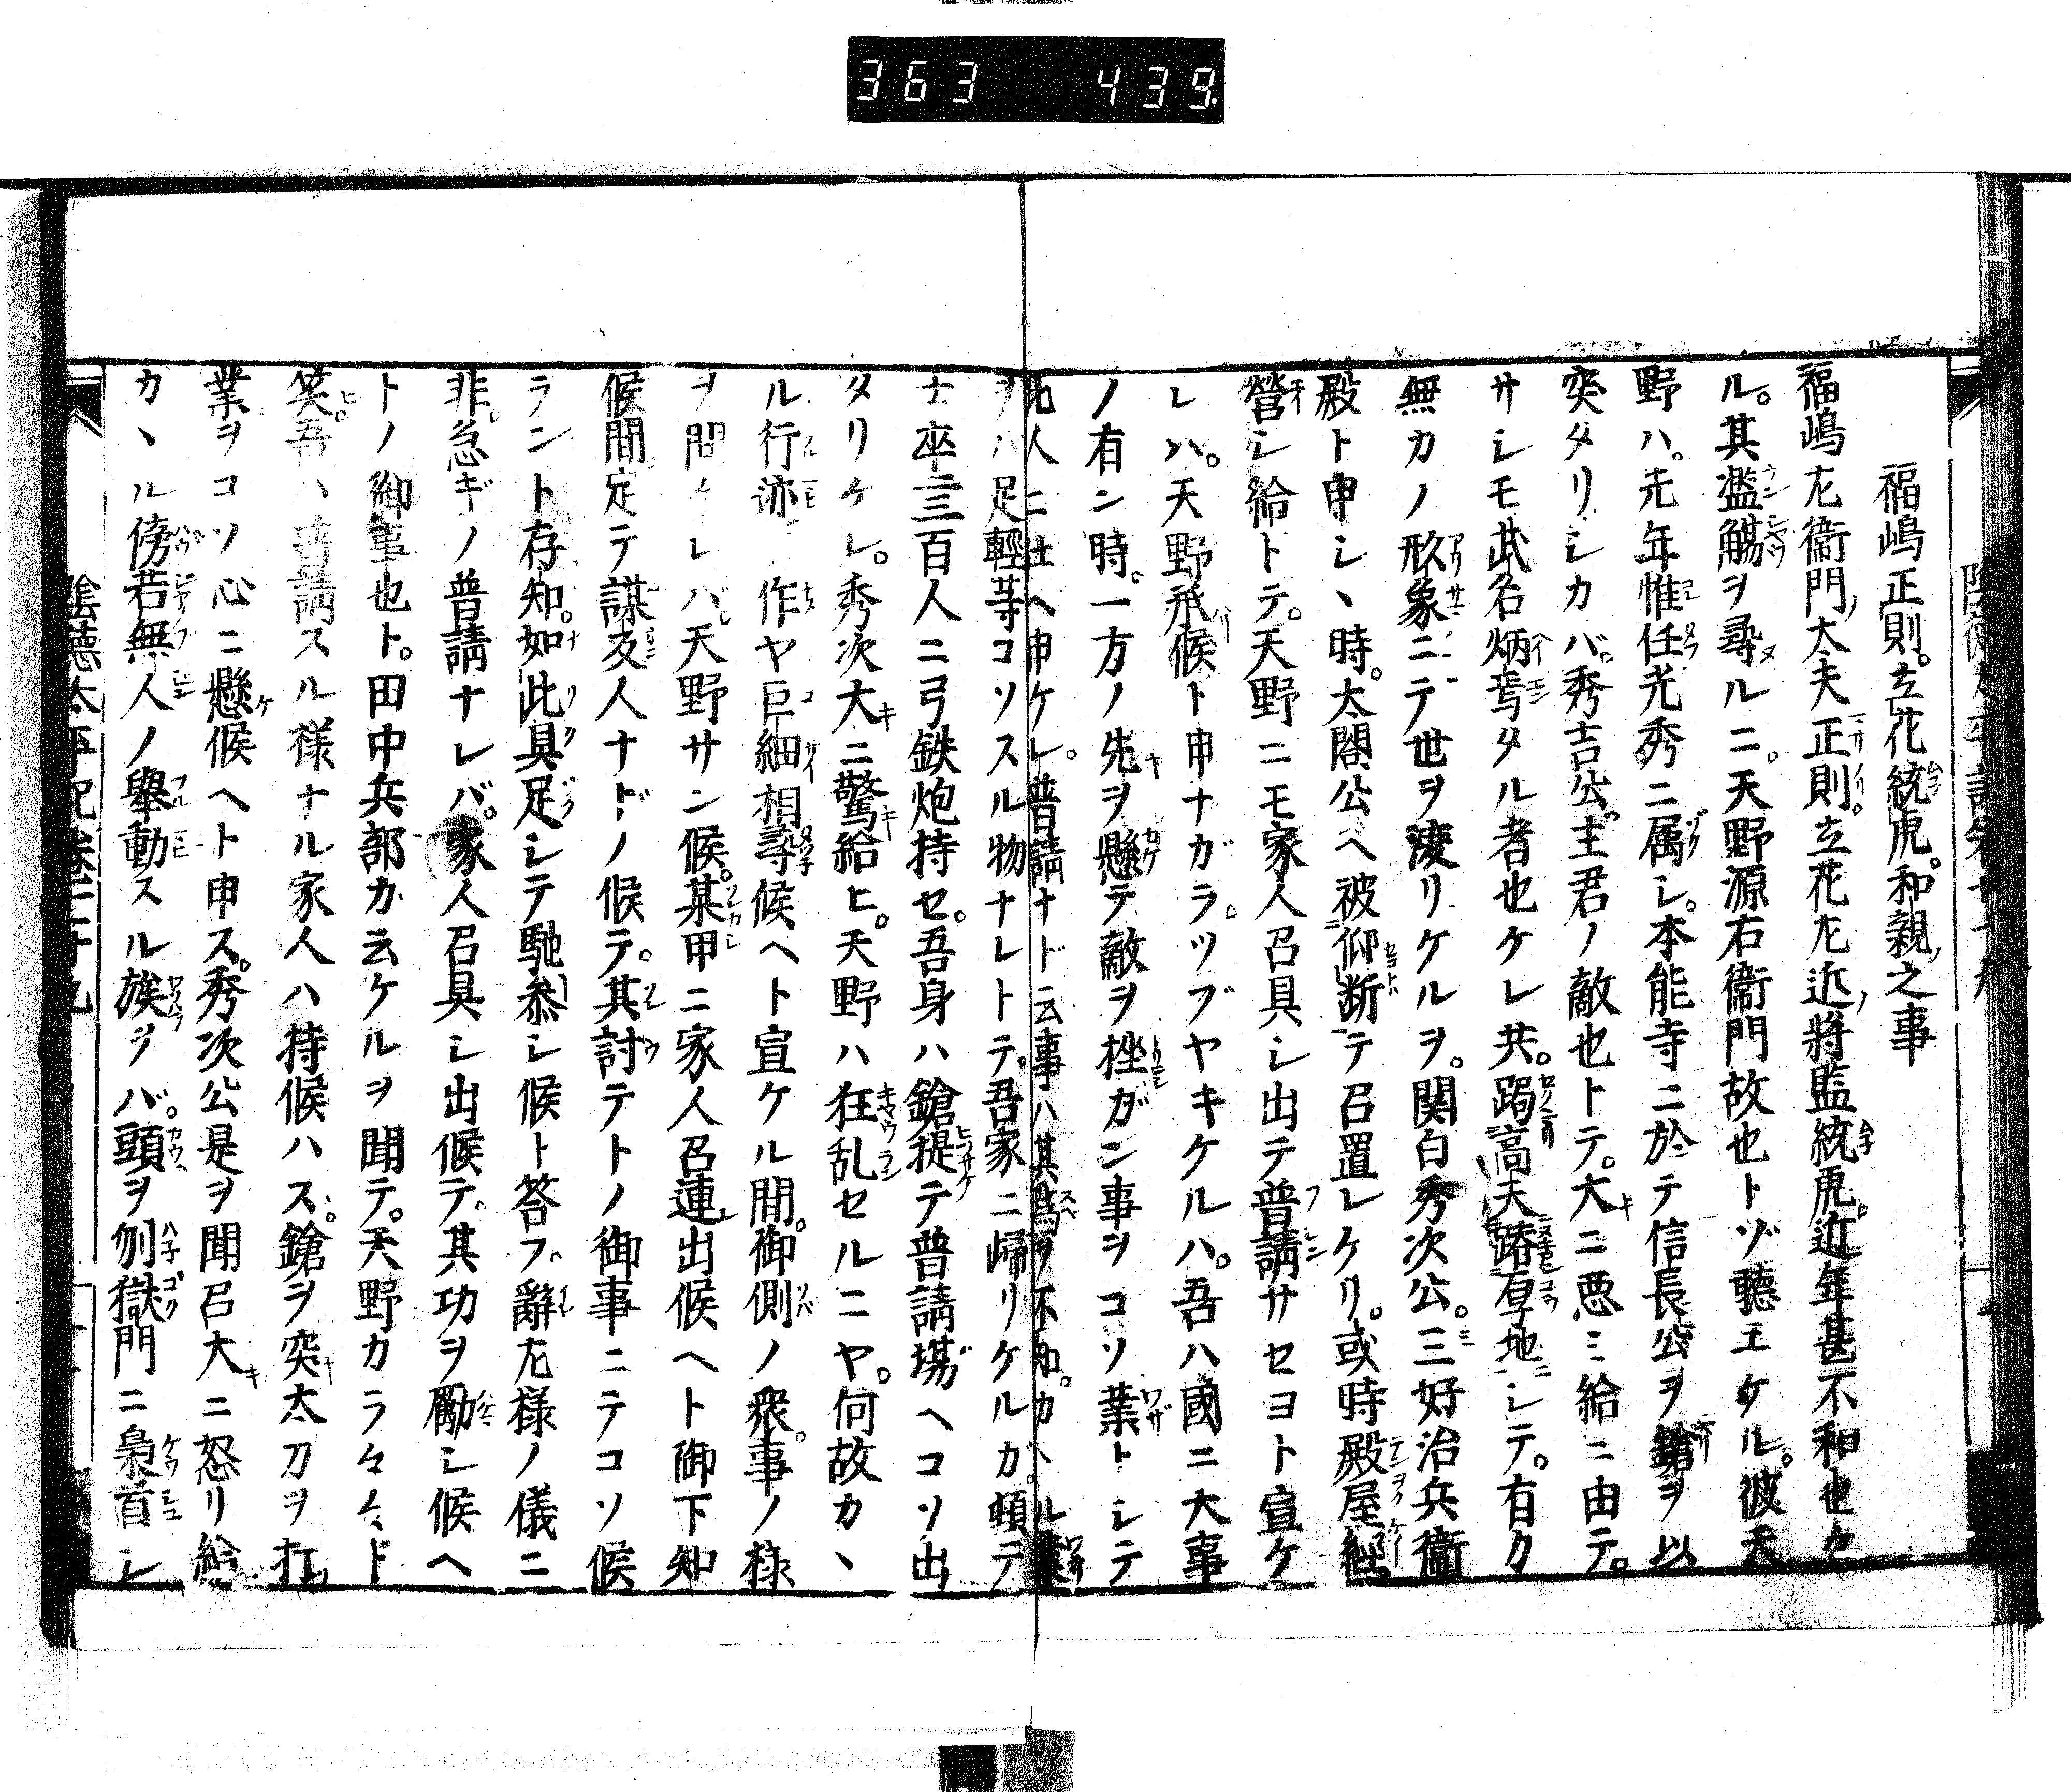 363 439
福嶋正則。立花統虎。和親之事
福嶋左衞門太夫正則。立花左近將監統虎。近年甚不和也ケ
ル。其濫觴ヲ尋ルニ。天野源右衞門故也トゾ聽エケル。彼天
野ハ。先年惟任光秀ニ属シ。本能寺ニ於テ信長公ヲ鎗ヲ以
突タリシカバ。秀吉公。主君ノ敵也トテ。大ニ悪ミ給ニ由テ。
サレモ武名炳焉タル者也ケレ共。跼高天蹐厚地シテ。有カ
無カノ形象ニテ世ヲ渡リケルヲ。関白秀次公。三好治兵衞
殿ト申シヽ時。太閤公ヘ被仰断テ召置レケリ。或時殿屋經
營シ給トテ。天野ニモ家人召具シ出テ普請サセヨト宣ケ
レハ。天野承候ト申ナガラ。ツブヤキケルハ。吾ハ國ニ大事
ノ有ン時。一方ノ先ヲ懸テ敵ヲ挫ガン事ヲコソ業トシテ
此人ニ仕ヘ申ケレ。普請ナド云事ハ其爲ヲ不知。カヽル業
ヲハ足輕等コソスル物ナレトテ。吾家ニ歸リケルガ。頓テ
士卒二三百人ニ弓鉄炮持セ。吾身ハ鎗提テ普請塲ヘコソ出
タリケレ。秀次大ニ驚給ヒ。天野ハ狂乱セルニヤ。何故カヽ
ル行迹作ヤ巨細相尋候ヘト宣ケル間。御側ノ衆事ノ様
ヲ問ケレハ。天野サン候。某甲ニ家人召連出候ヘト御下知
候間定テ謀叛人ナドノ候テ。其討テトノ御事ニテコソ候
ラント存知。如此具足シテ馳参シ候ト答フ。辭左様ノ儀ニ
非。急ギノ普請ナレバ。家人召具シ出候テ。其功ヲ勵シ候ヘ
トノ御事也ト。田中兵部カ云ケルヲ聞テ。天野カラ々々ド
笑。吾ハ普請スル様ナル家人ハ持候ハス。鎗ヲ突太刀ヲ打
業ヲコソ心ニ懸候ヘト申ス。秀次公是ヲ聞召大ニ怒リ給
カヽル傍若無人ノ舉動スル族ヲバ。頭ヲ刎獄門ニ梟首シ
陰德太平記卷七十九